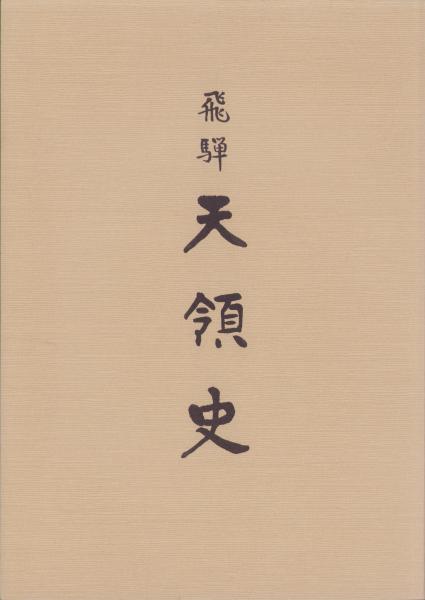 飛騨
天領史